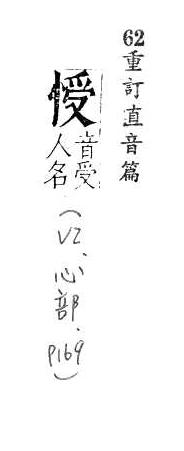 62重訂直音篇
㥅
音受
人名
(V2、心部、P169)